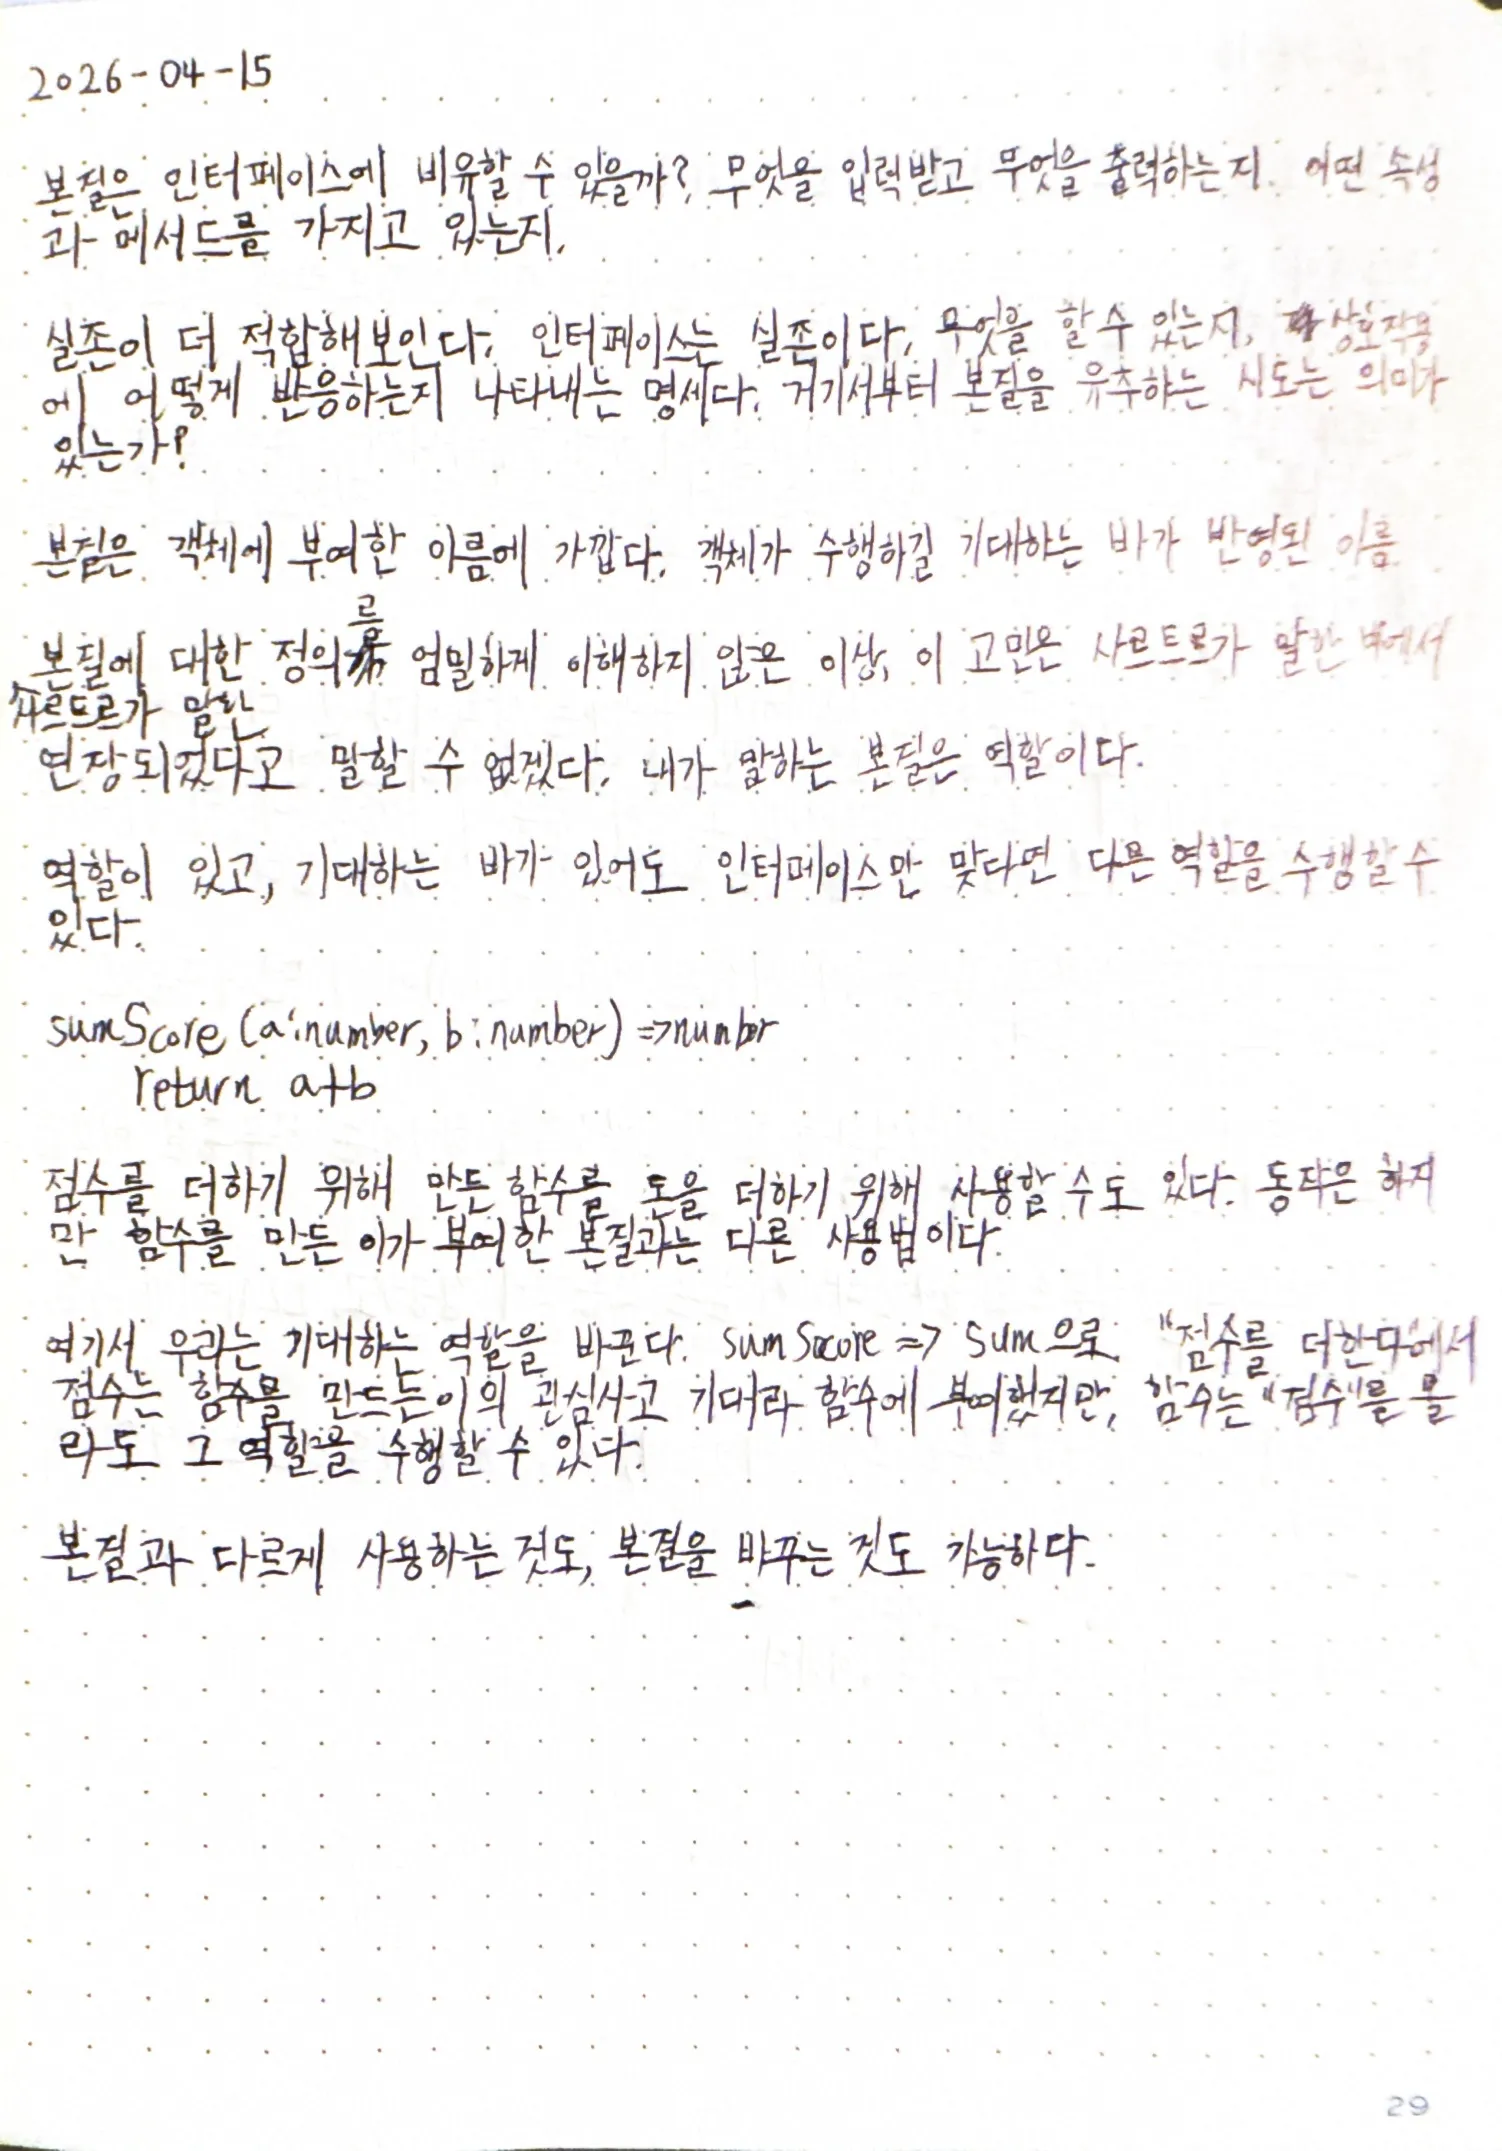 2026-04-15
본질은 인터페이스에 비유할 수 있을까? 무엇을 입력받고 무엇을 출력하는지. 어떤 속성
과 메서드를 가지고 있는지.
실존이 더 적합해보인다. 인터페이스는 실존이다. 무엇을 할 수 있는지, 상호작용
에 어떻게 반응하는지 나타내는 명세다. 거기서부터 본질을 유추하는 시도는 의미가
있는가?
본질은 객체에 부여한 이름에 가깝다. 객체가 수행하길 기대하는 바가 반영된 이름
본질에 대한 정의를 엄밀하게 이해하지 않은 이상, 이 고민은 사르트르가 말한 바에서
사르트르가 말한
연장되었다고 말할 수 없겠다. 내가 말하는 본질은 역할이다.
역할이 있고, 기대하는 바가 있어도 인터페이스만 맞다면 다른 역할을 수행할 수
있다.
sumScore (a:number, b:number) => number
return a+b
점수를 더하기 위해 만든 함수를 돈을 더하기 위해 사용할 수도 있다. 동작은 하지
만 함수를 만든 이가 부여한 본질과는 다른 사용법이다.
여기서 우리는 기대하는 역할을 바꾼다. sumScore => sum으로 "점수를 더한다"에서
점수는 함수를 만드는 이의 관심사고 기대라 함수에 부여했지만, 함수는 "점수"를 몰
라도 그 역할을 수행할 수 있다.
본질과 다르게 사용하는 것도, 본질을 바꾸는 것도 가능하다.
29